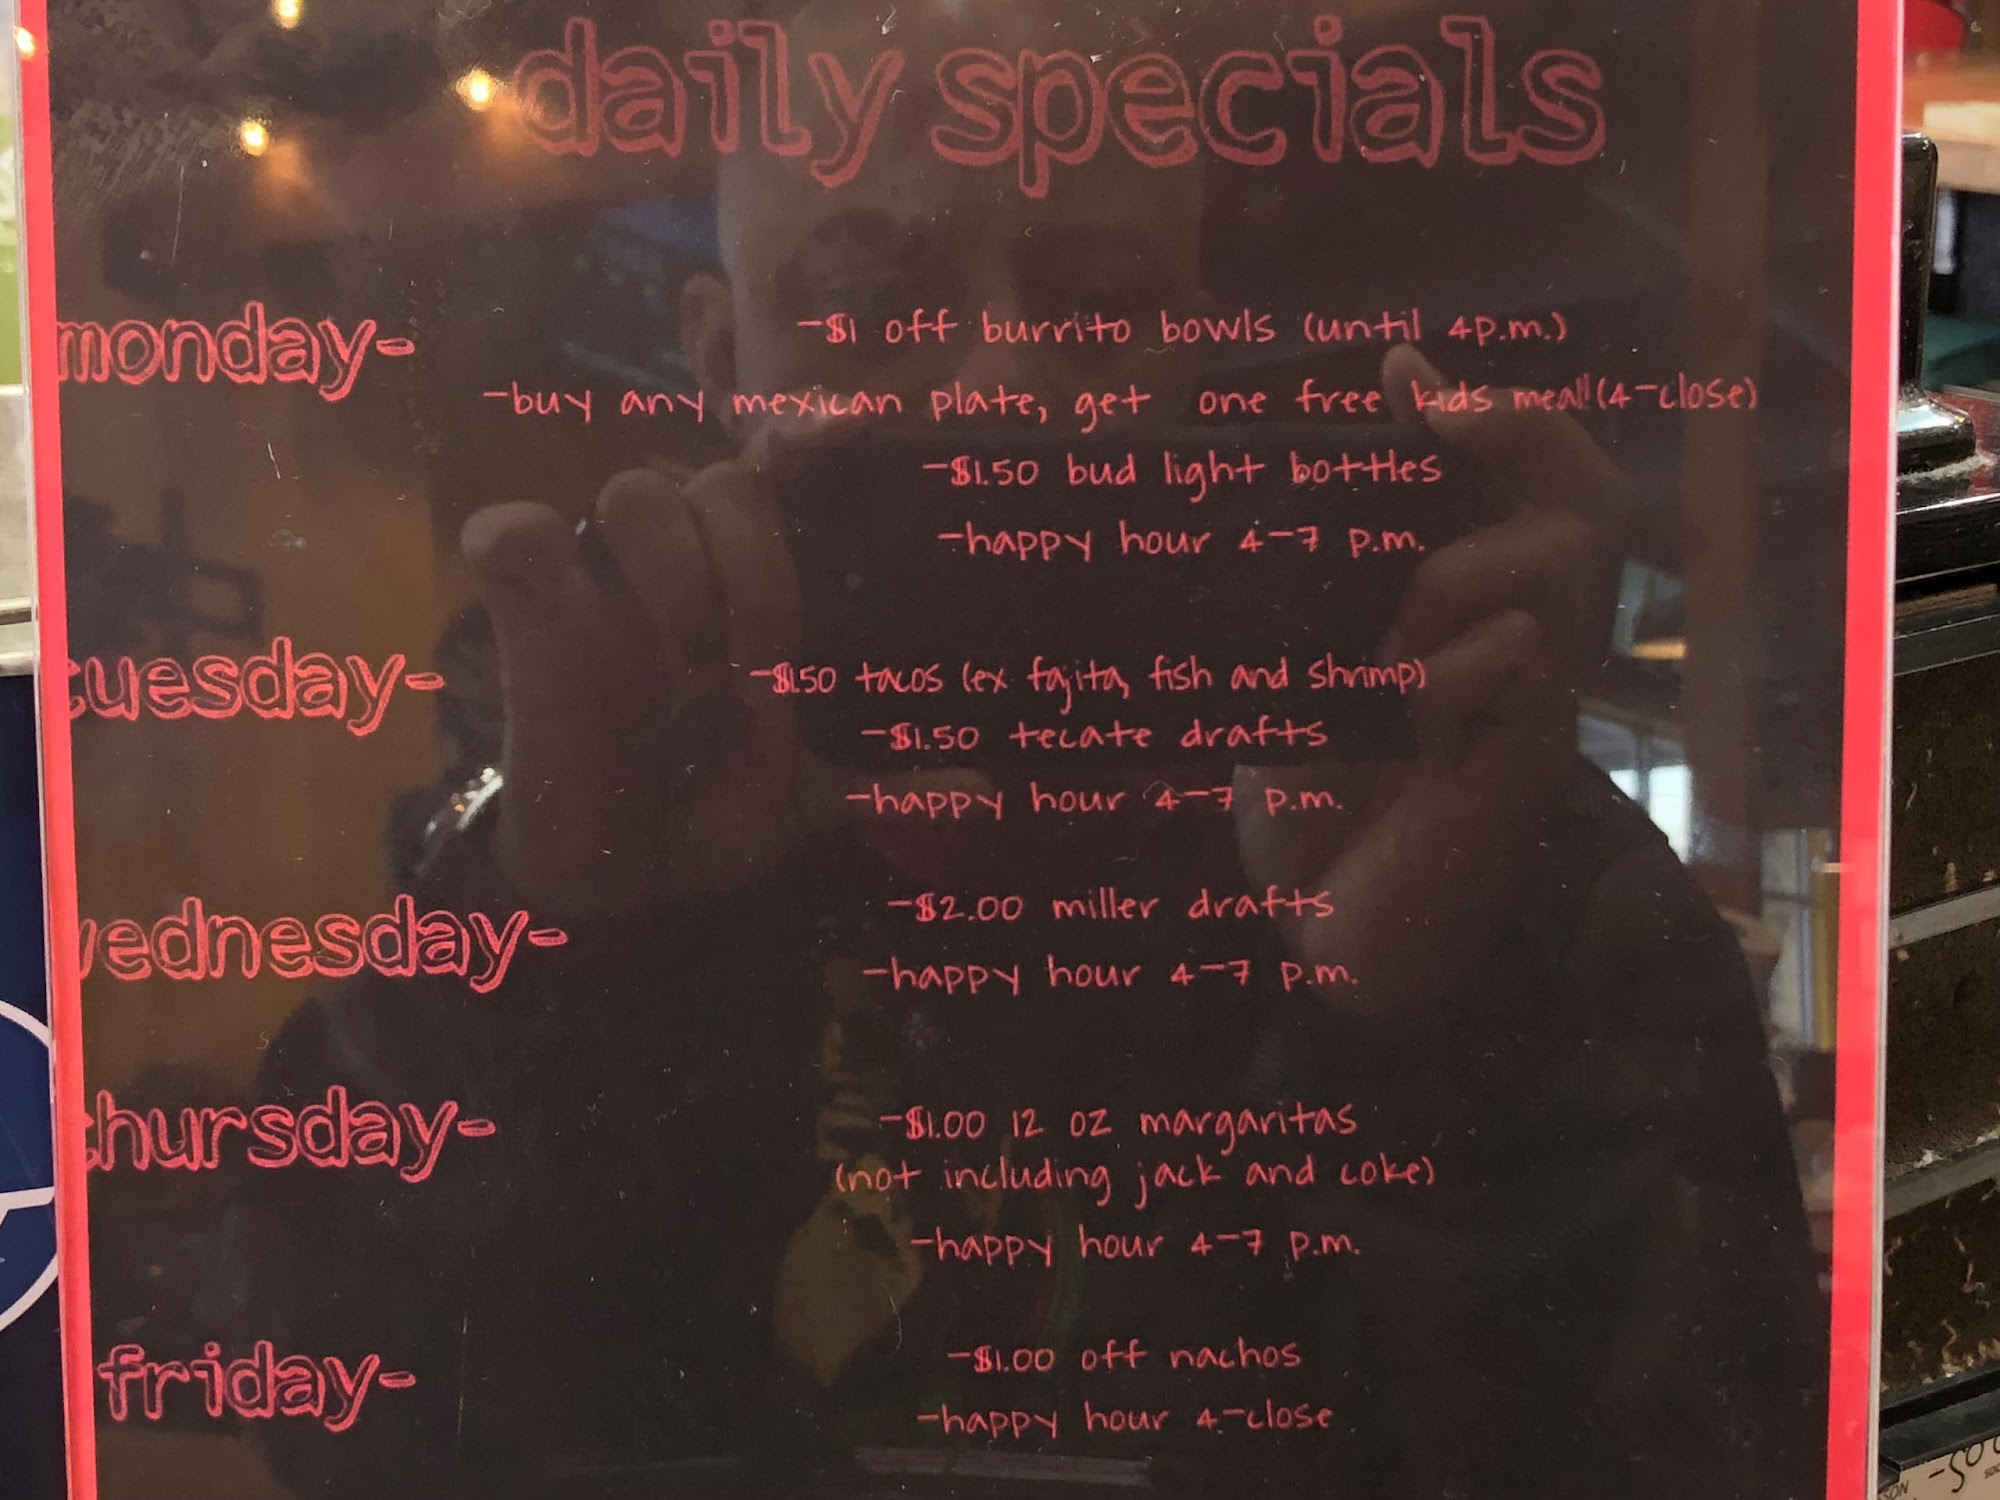 daily specials
monday-
-$1 off burrito bowls (until 4p.m.)
-buy any mexican plate, get one free kids meal! (4-close)
-$1.50 bud light bottles
-happy hour 4-7 p.m.
tuesday-
-$1.50 tacos (ex fajita, fish and shrimp)
-$1.50 tecate drafts
-happy hour 4-7 p.m.
wednesday-
-$2.00 miller drafts
-happy hour 4-7 p.m.
thursday-
-$1.00 12 oz margaritas
(not including jack and coke)
-happy hour 4-7 p.m.
friday-
-$1.00 off nachos
-happy hour 4-close